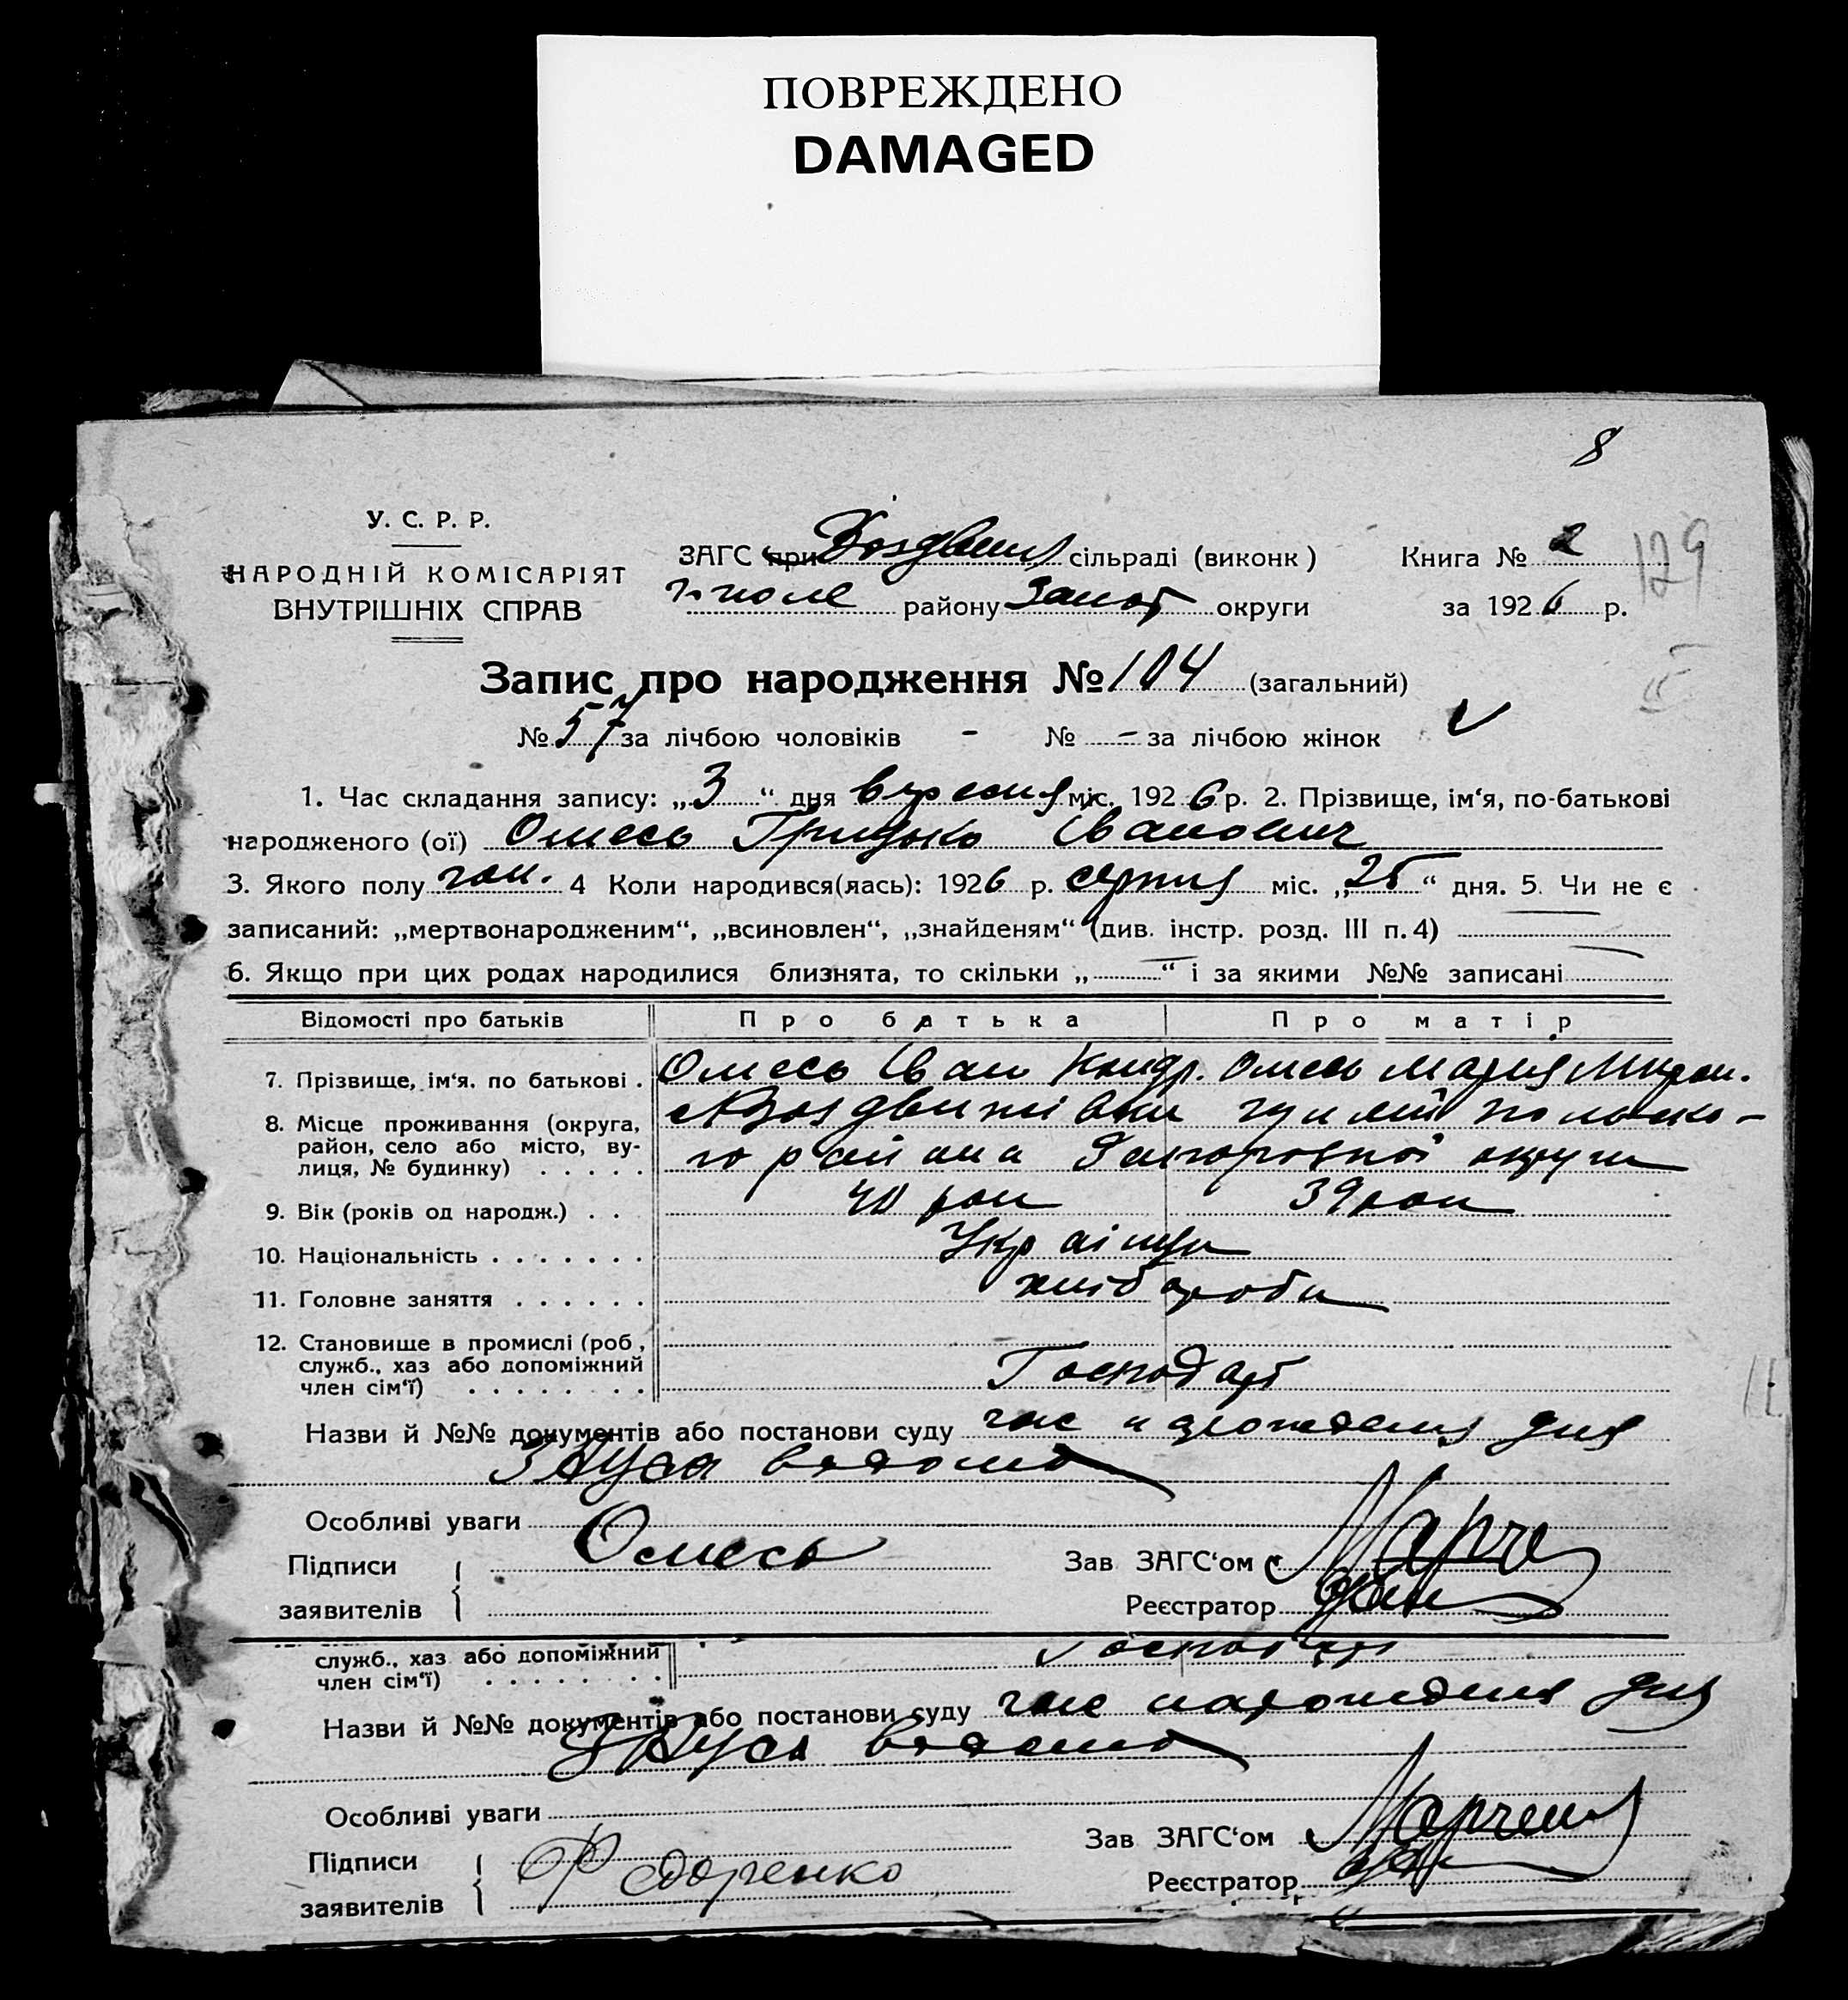 ПОВРЕЖДЕНО
DAMAGED
8
У. С. Р. Р.
НАРОДНІЙ КОМІСАРІЯТ
ВНУТРІШНІХ СПРАВ
ЗАГС при Воздвиж сільраді (виконк)
Г-поле району Запор округи
Книга № 2
за 1926 р.
129
Запис про народження № 104 (загальний)
№ 57 за лічбою чоловіків - № - за лічбою жінок
1. Час складання запису: „3“ дня вересня міс. 1926 р. 2. Прізвище, ім‘я, по-батькові
народженого (ої) Омесь Грицько Іванович
3. Якого полу чол. 4 Коли народився(лась): 1926 р. серпня міс. „25“ дня. 5. Чи не є
записаний: „мертвонародженим“, „всиновлен“, „знайденям“ (див. інстр. розд. III п. 4)
6. Якщо при цих родах народилися близнята, то скільки „ “ і за якими №№ записані
Відомості про батьків Про батька Про матір
7. Прізвище, ім‘я. по батькові . Омесь Іван Кондр. Омесь Мария Мирон.
8. Місце проживання (округа, район, село або місто, вулиця, № будинку) с Воздвижівки Гуляй Польсько-
го району Запорозької округи
9. Вік (років од народж.) . . 40 рок 39 рок
10. Національність . . . . . . . Українци
11. Головне заняття . . . . . . хлібороби
12. Становище в промислі (роб, служб., хаз або допоміжний член сім‘ї) . . . . . . . . Господарь
Назви й №№ документів або постанови суду час народження дня
З Ауса ведомо
Особливі уваги
Підписи
заявителів
Омесь
Зав ЗАГС‘ом
Реєстратор
служб., хаз або допоміжний
член сім‘ї) . . . . . . . . Господар
Назви й №№ документів або постанови суду час народження дня
Особливі уваги
Підписи
заявителів
Федоренко
Зав ЗАГС‘ом Марчен
Реєстратор